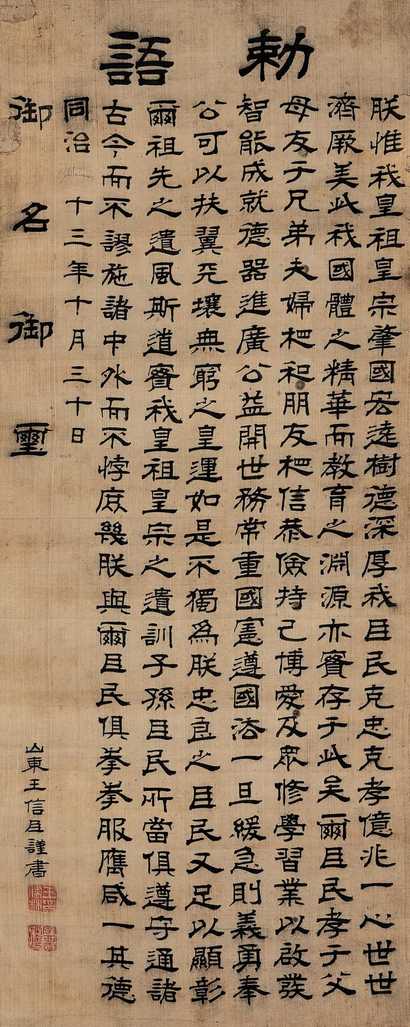 勅語
朕惟我皇祖皇宗肇國宏遠樹德深厚我臣民克忠克孝億兆一心世世
濟厥美此我國體之精華而教育之淵源亦實存于此矣爾臣民孝于父
母友于兄弟夫婦相和朋友相信恭儉持己博愛及眾修學習業以啟發
智能成就德器進廣公益開世務常重國憲遵國法一旦緩急則義勇奉
公可以扶翼天壤無窮之皇運如是不獨為朕忠良之臣民又足以顯彰
爾祖先之遺風斯道實我皇祖皇宗之遺訓子孫臣民所當俱遵守通諸
古今而不謬施諸中外而不悖庶幾朕與爾臣民俱拳拳服膺咸一其德
同治 十三年十月三十日
御名御璽
山東王信臣謹書